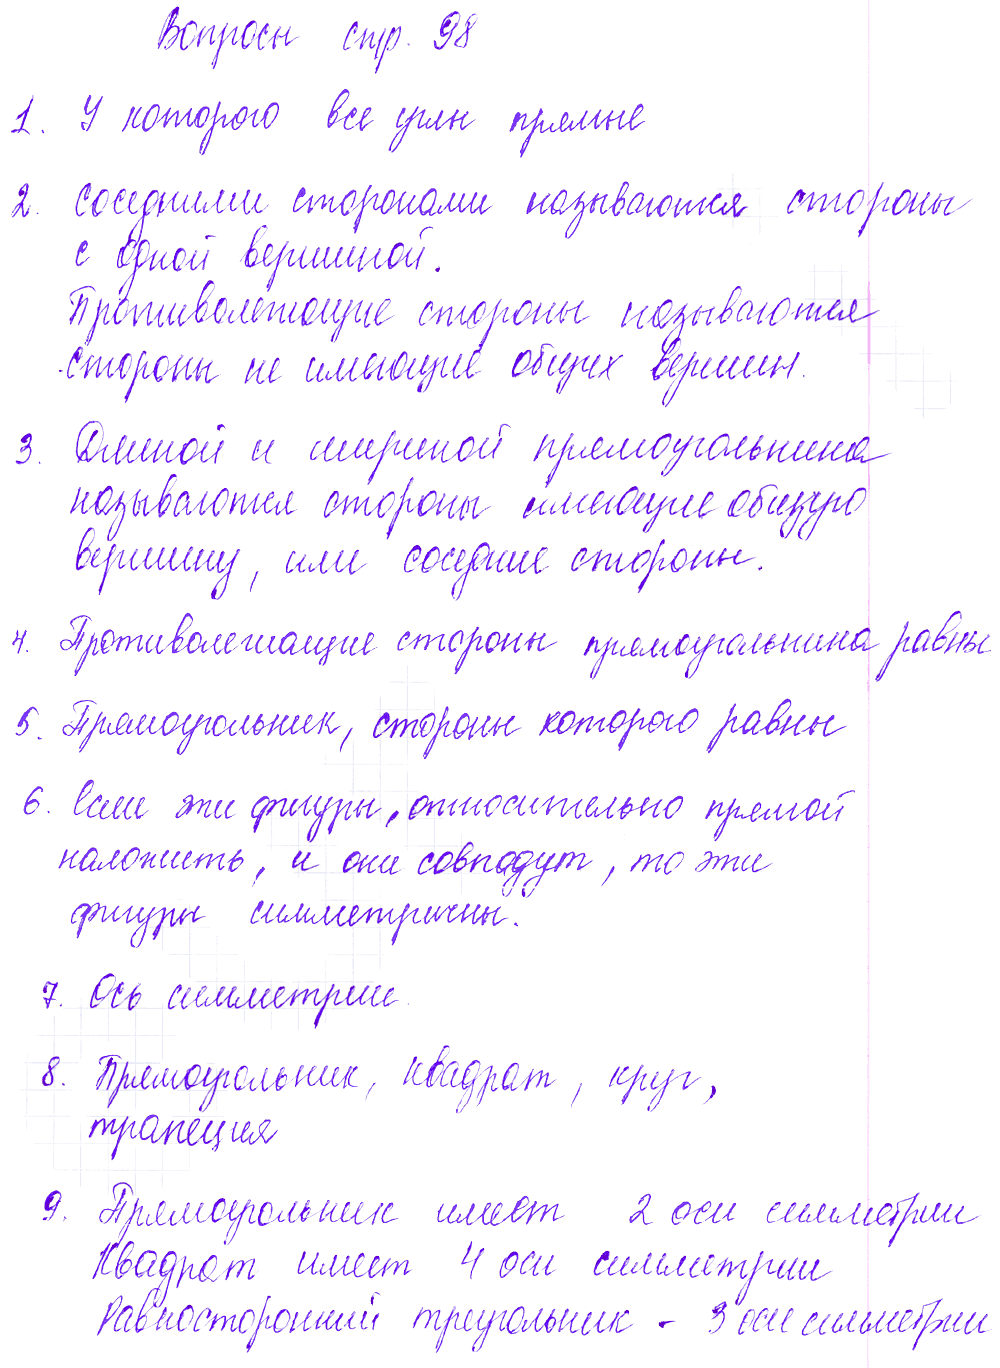 Вопросы стр. 98
1. У которого все углы прямые
2. Соседними сторонами называются стороны
с одной вершиной.
Противолежащие стороны называются
стороны не имеющие общих вершин.
3. Длиной и шириной прямоугольника
называются стороны имеющие общую
вершину, или соседние стороны.
4. Противолежащие стороны прямоугольника равны
5. Прямоугольник, стороны которого равны
6. Если эти фигуры, относительно прямой
наложить, и они совпадут, то эти
фигуры симметричны.
7. Ось симметрии.
8. Прямоугольник, квадрат, круг,
трапеция
9. Прямоугольник имеет 2 оси симметрии
Квадрат имеет 4 оси симметрии
Равносторонний треугольник - 3 оси симметрии